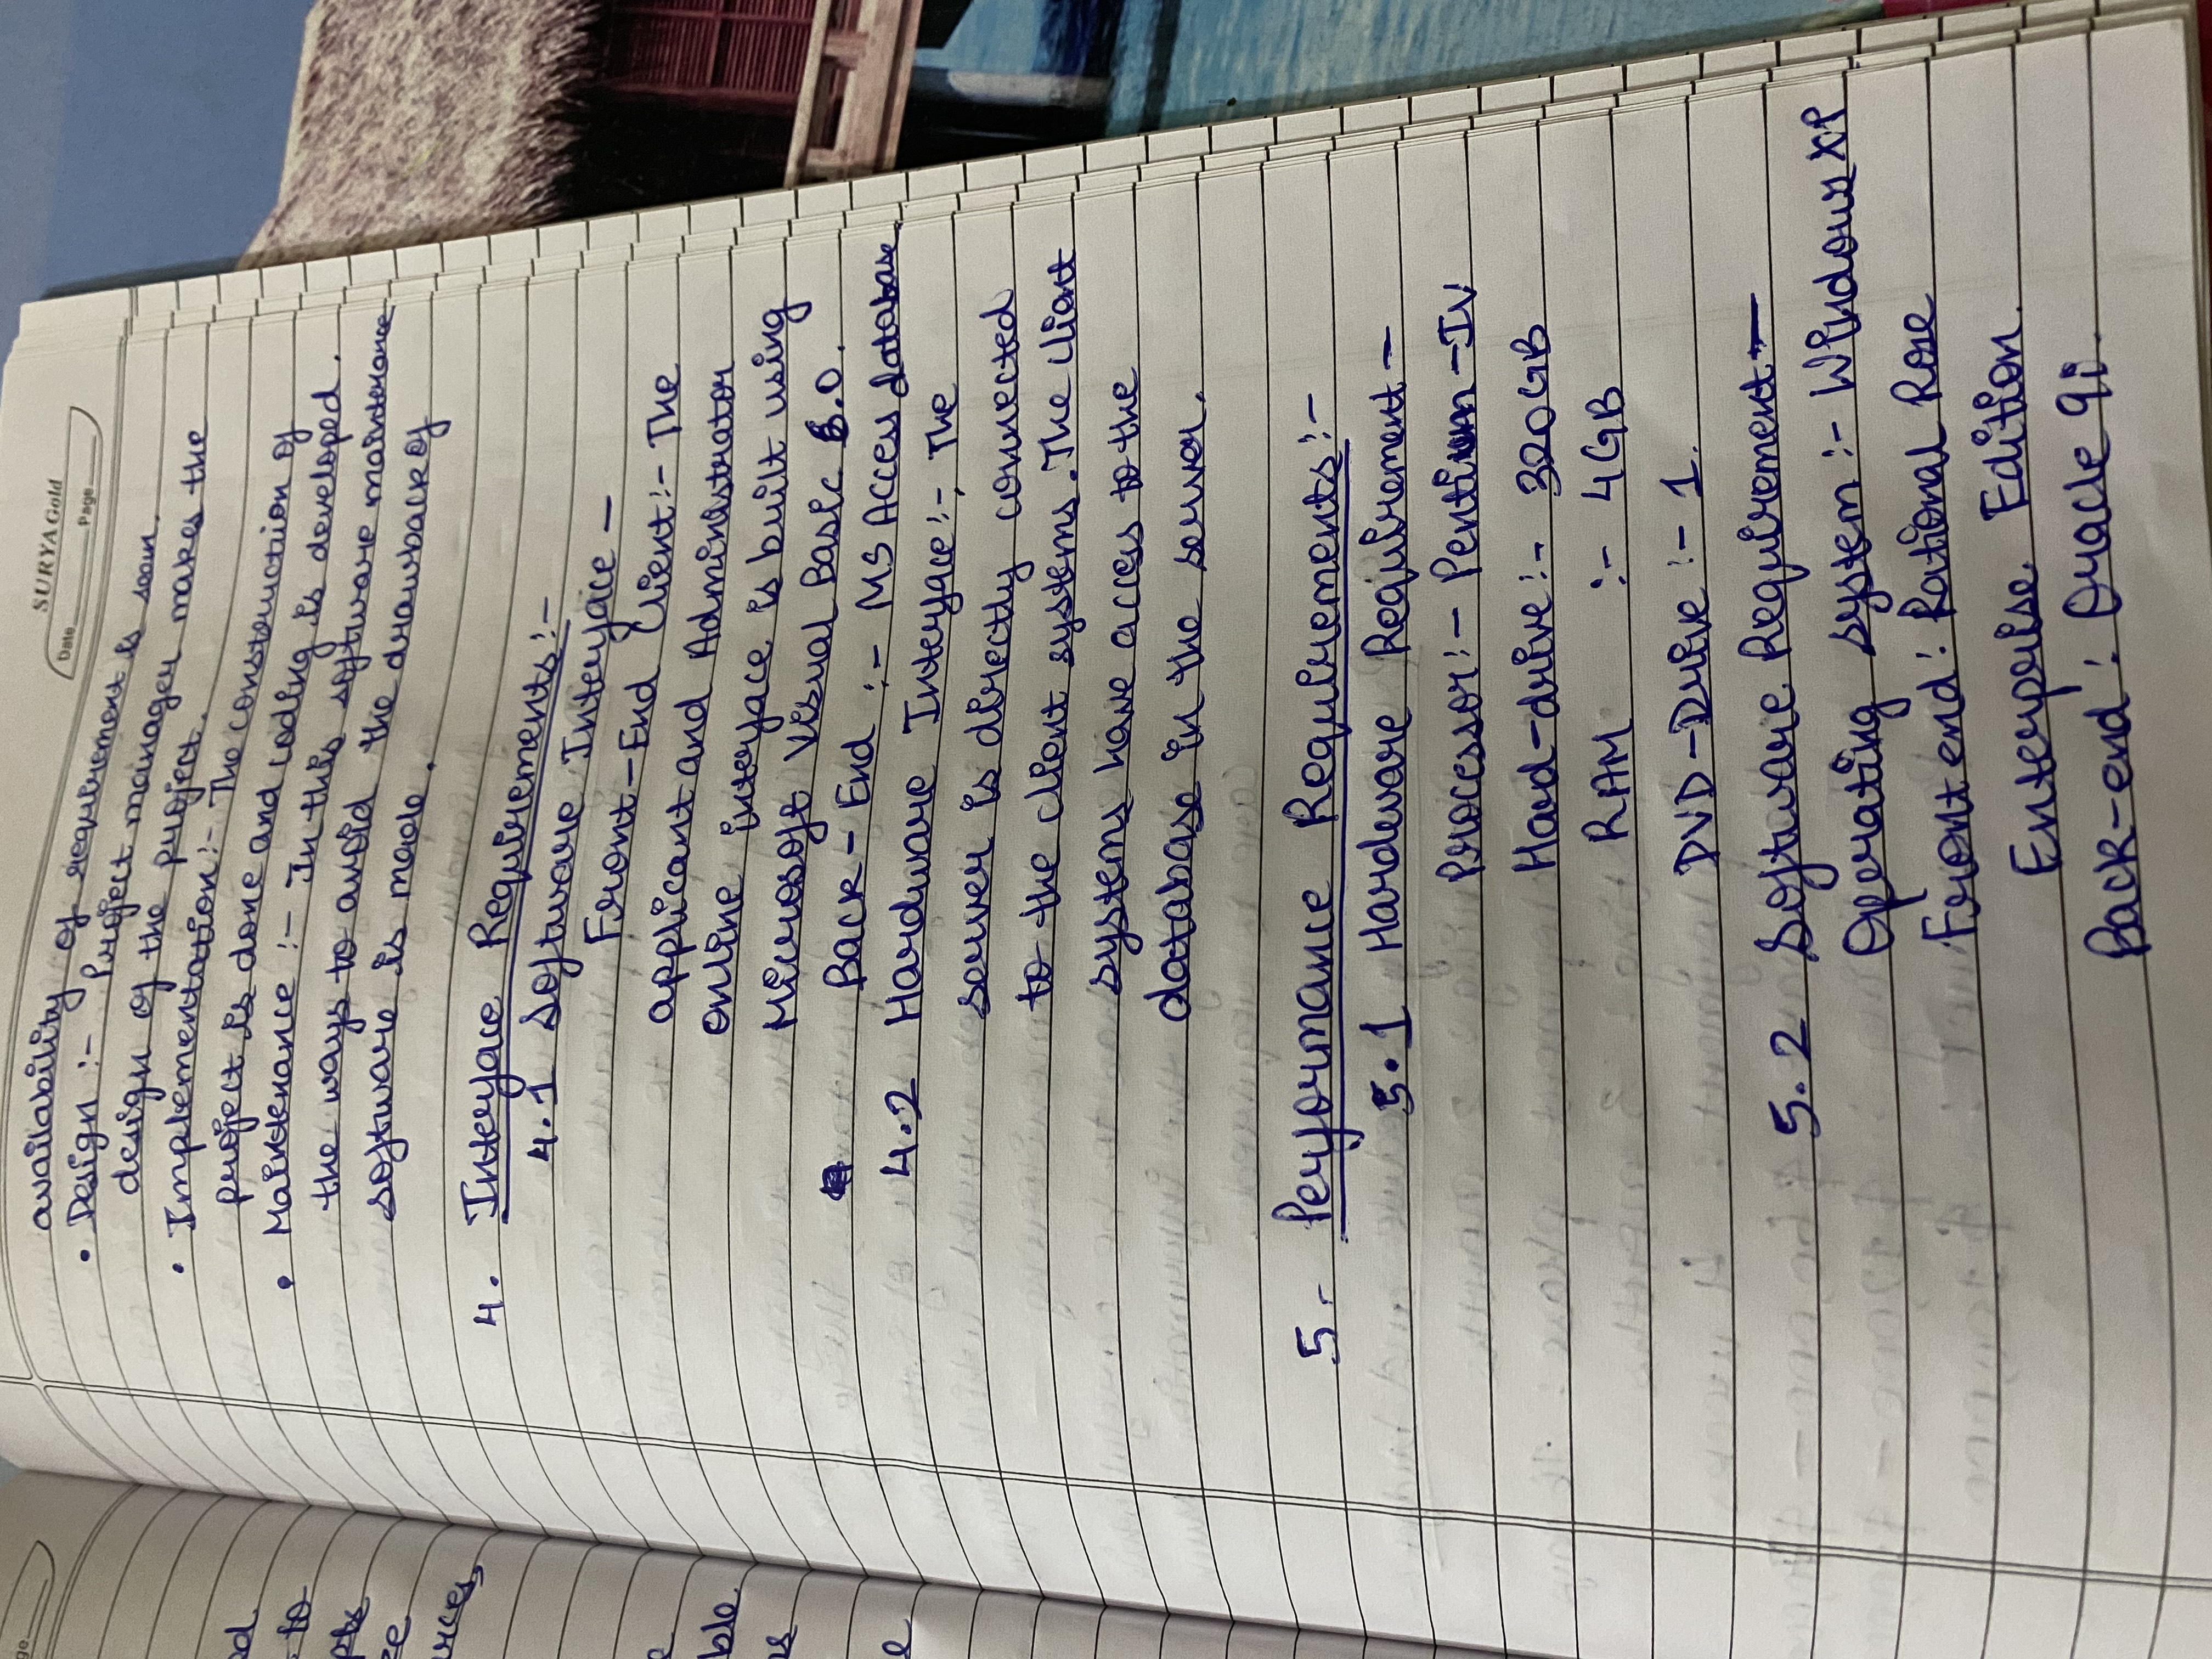 ge
SURYA Gold
Date
Page
availability of requirement is soon.
• Design :- Project manager makes the
design of the project.
• Implementation :- The construction of
project is done and coding is developed.
• Maintenance :- In this software maintenance
the ways to avoid the drawback of
software is made.
4. Interface Requirements :-
4.1 Software Interface -
Front-End Client :- The
applicant and Administrator
online interface is built using
Microsoft Visual Basic 6.0.
Back-End :- MS Access database
4.2 Hardware Interface :- The
server is directly connected
to the client systems. The client
systems have access to the
database in the server.
5. Performance Requirements :-
5.1 Hardware Requirement -
Processor :- Pentium-IV
Hard-drive :- 320GB
RAM :- 4GB
DVD-Drive :- 1.
5.2 Software Requirement -
Operating system :- Windows XP
Front end : Rational Rose
Enterprise Edition.
Back-end : Oracle 9i.